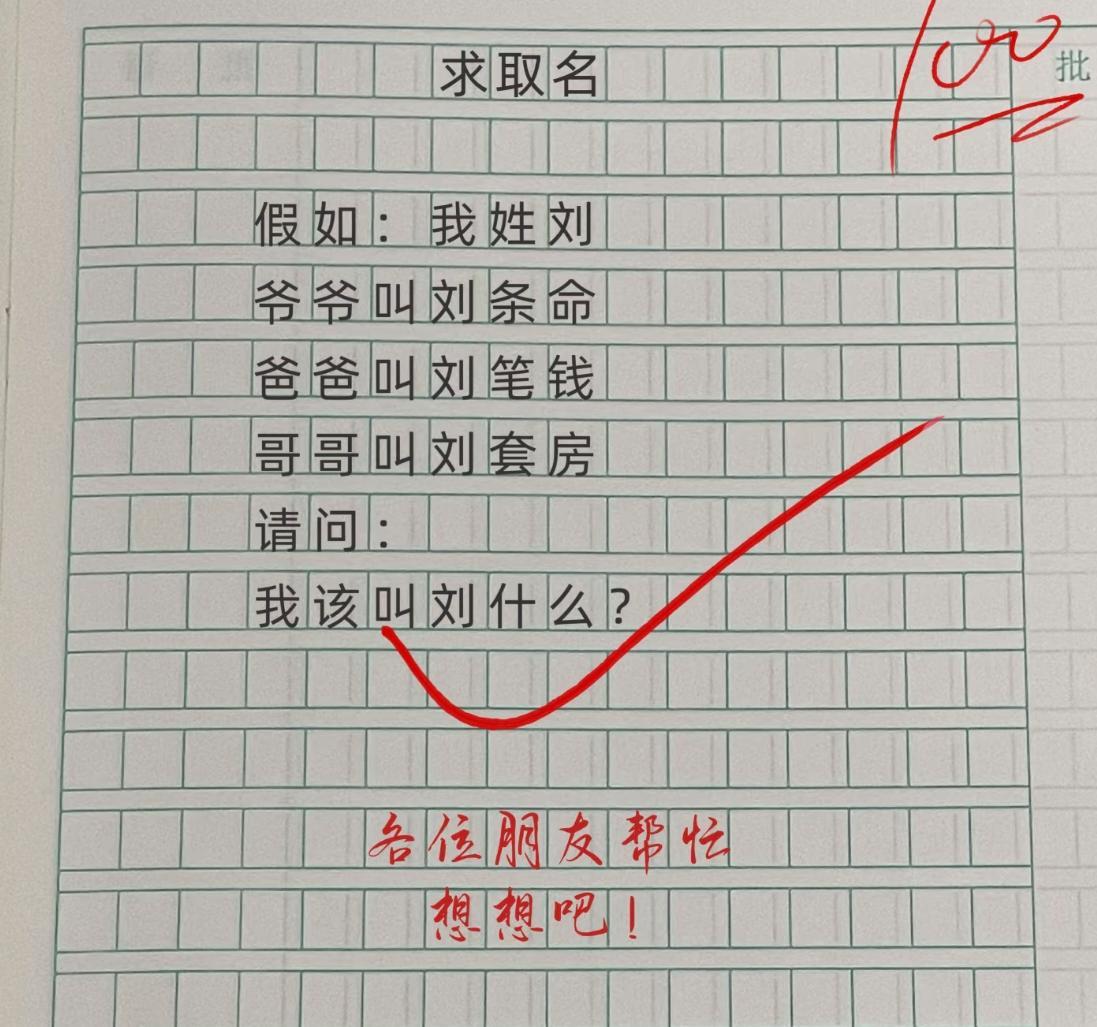 求取名
100
批
假如：我姓刘
爷爷叫刘条命
爸爸叫刘笔钱
哥哥叫刘套房
请问：
我该叫刘什么？
各位朋友帮忙
想想吧！